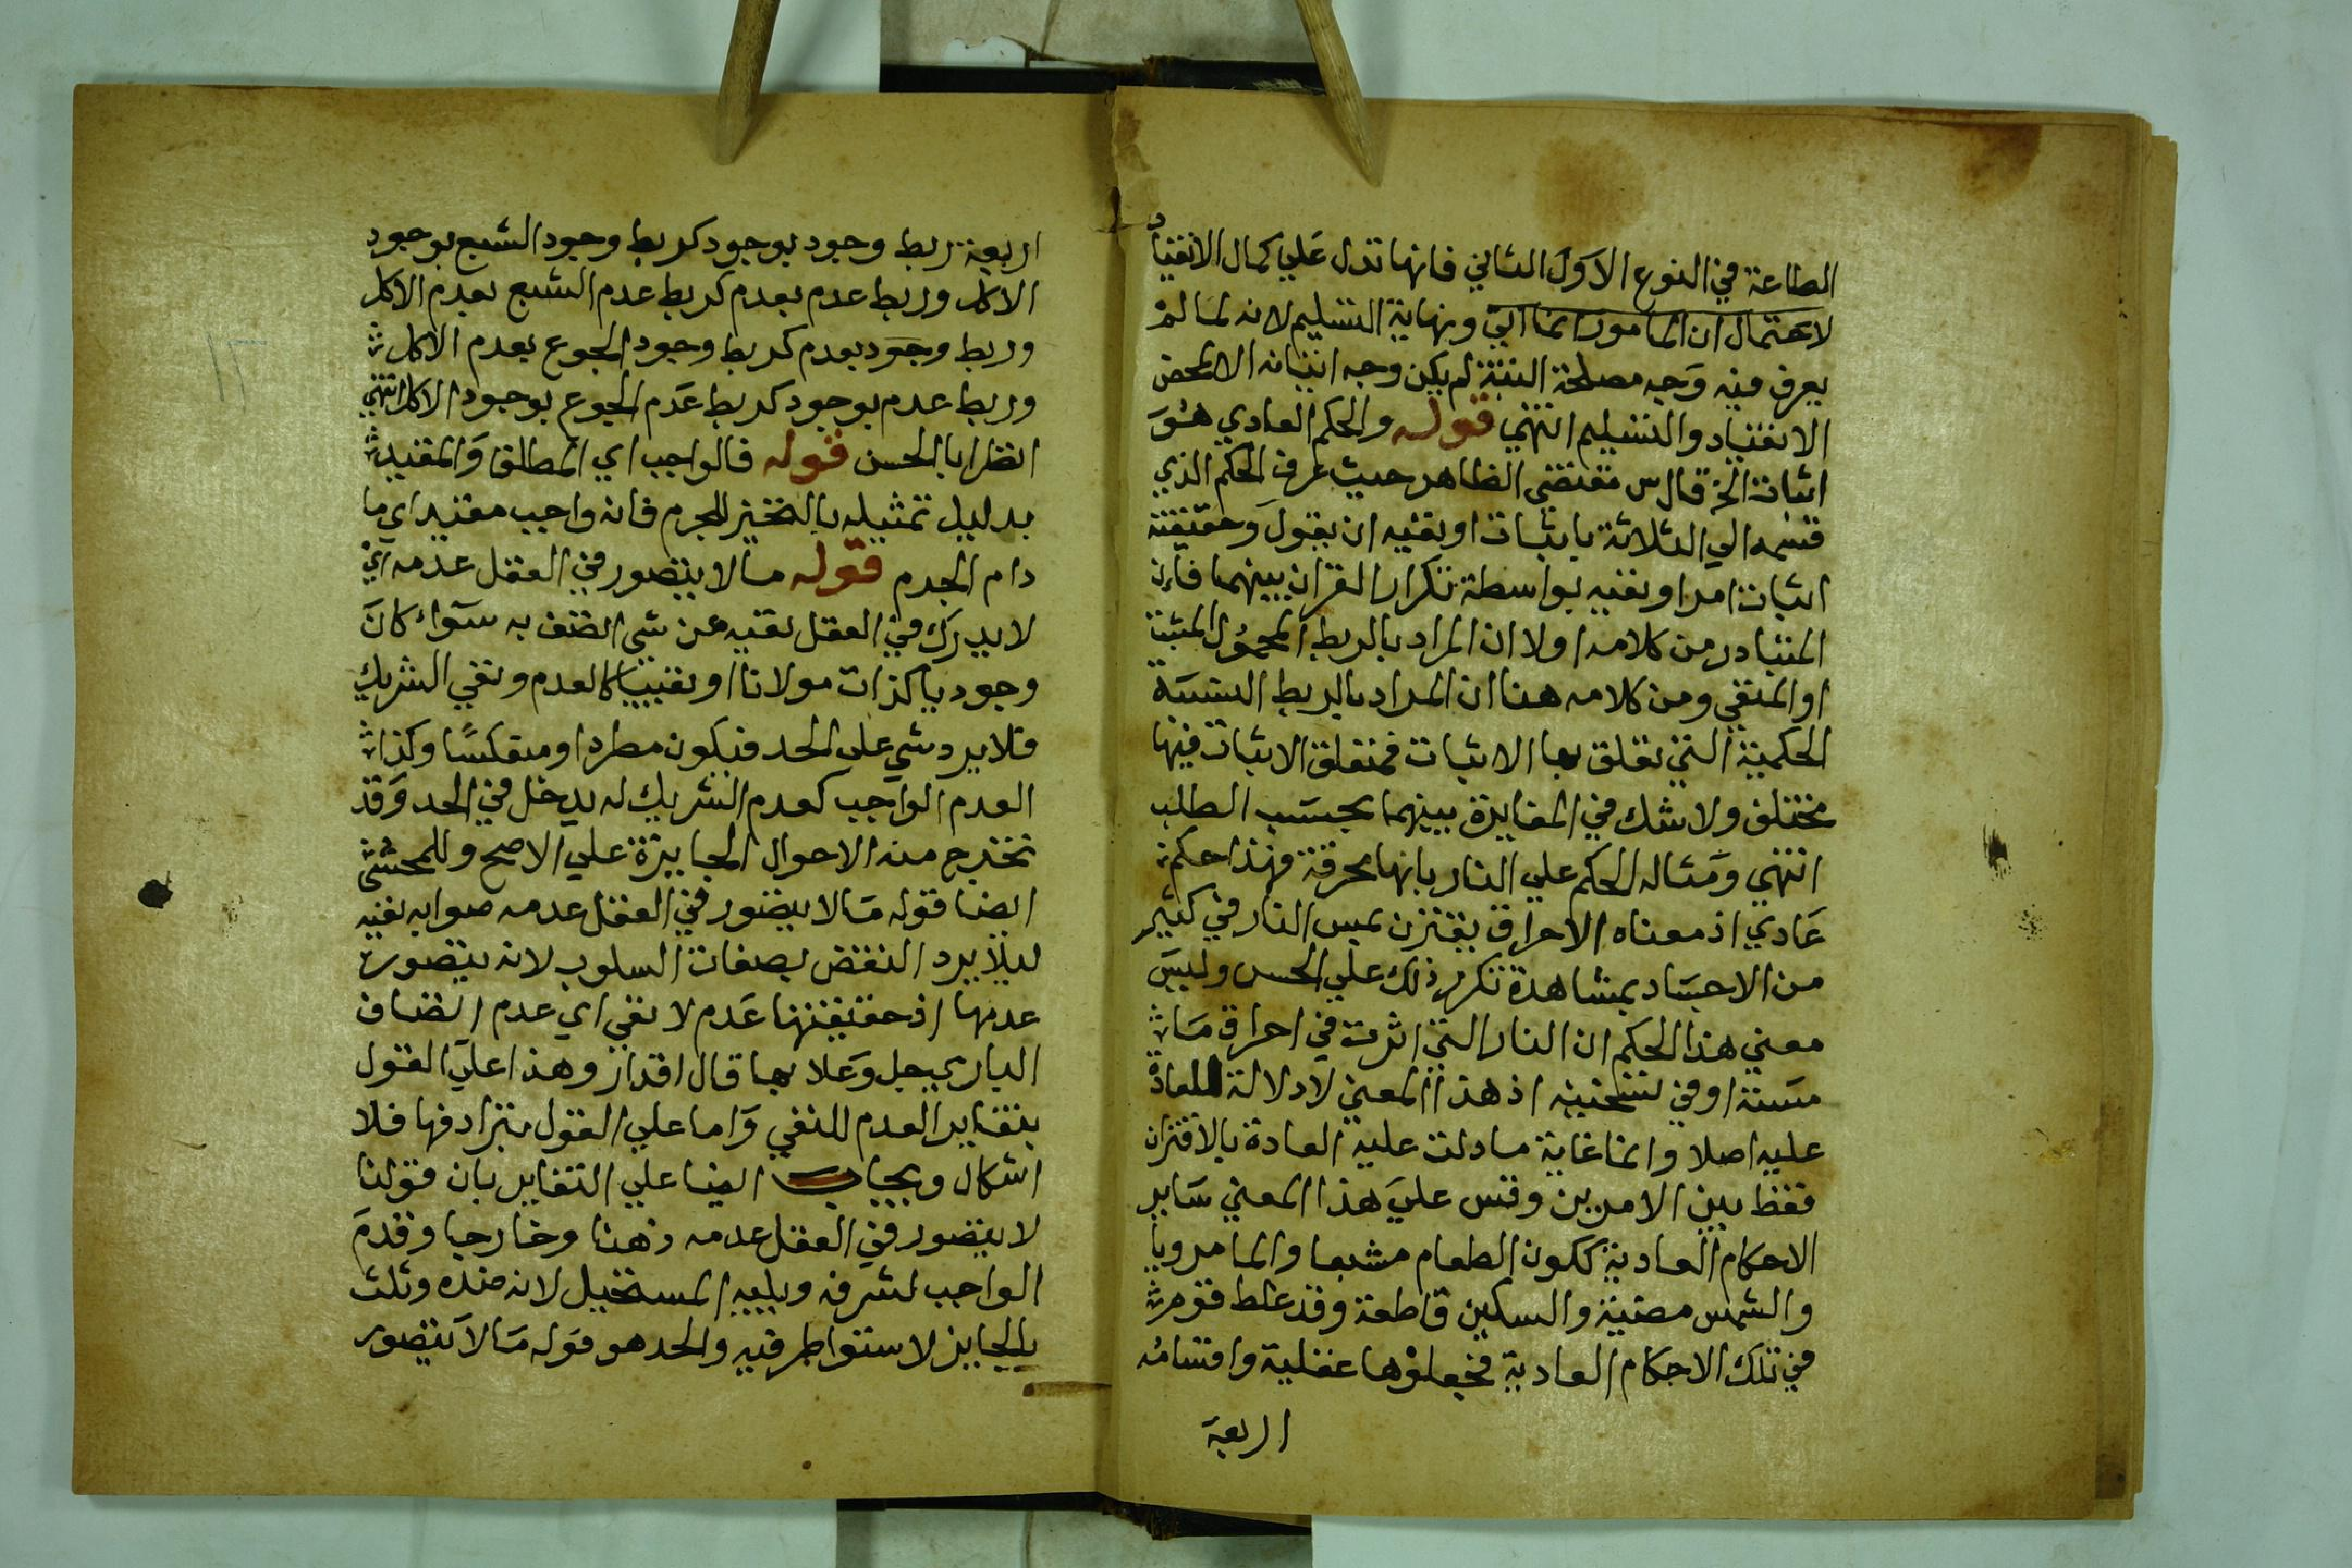 الطاعة في النوع الاول الثاني فانها تدل علي كمال الانقياد
لاحتمال ان المامور انما اتي ونهاية التسليم لانه لما لم
يعرف فيه وجه مصلحة البتة لم يكن وجه اتيانه الا لمحض
الانقياد والتسليم انتهي قوله والحكم العادي هو
اثبات الخ قال س مقتضي الظاهر حيث عرف الحكم الذي
قسمه الي الثلاثة باثبات او نفيه ان يقول وحقيقته
اثبات امر او نفيه بواسطة تكرار القران بينهما فان
المتبادر من كلامه اولا ان المراد بالربط المحمول المثبت
او المنفي ومن كلامه هنا ان المراد بالربط النسبة
الحكمية التي تعلق بها الاثبات فمتعلق الاثبات فيها
مختلف ولا شك في المغايرة بينهما بحسب الطلب
انتهي ومثاله الحكم علي النار بانها محرقة فهذا حكم
عادي اذ معناه الاحراق يقترن بمس النار في كثير
من الاجساد بمشاهدة تكرر ذلك علي الحس وليس
معني هذا الحكم ان النار التي اثرت في احراق ما
مسته او في تسخينه اذ هذا المعني لا دلالة للعادة
عليه اصلا وانما غاية ما دلت عليه العادة بالاقتران
فقط بين الامرين وقس علي هذا المعني ساير
الاحكام العادية ككون الطعام مشبعا والماء مرويا
والشمس مضيئة والسكين قاطعة وقد غلط قوم
في تلك الاحكام العادية فجعلوها عقلية واقسامه
اربعة
اربعة ربط وجود بوجود كربط وجود الشبع بوجود
الاكل وربط عدم بعدم كربط عدم الشبع بعدم الاكل
وربط وجود بعدم كربط وجود الجوع بعدم الاكل
وربط عدم بوجود كربط عدم الجوع بوجود الاكل انتهي
انظر ابا الحسن قوله فالواجب اي المطلق والمقيد
بدليل تمثيله بالتحيز للجرم فانه واجب مقيد اي ما
دام الجرم قوله ما لا يتصور في العقل عدمه اي
لا يدرك في العقل نفيه عن شي اتصف به سواء كان
وجوديا كذات مولانا او نفييا كالعدم ونفي الشريك
فلا يرد شي علي الحد فيكون مطردا ومنعكسا وكذا
العدم الواجب كعدم الشريك له يدخل في الحد وقد
تخرج منه الاحوال الجايزة علي الاصح وللمحشي
ايضا قوله ما لا يتصور في العقل عدمه صوابه نفيه
ليلا يرد النقض بصفات السلوب لانه يتصور
عدمها اذ حقيقتها عدم لا نفي اي عدم اتصاف
الباري جل وعلا بها قال اقدار وهذا علي القول
بتغاير العدم للنفي واما علي القول بترادفها فلا
اشكال ويجاب ايضا علي التغاير بان قولنا
لا يتصور في العقل عدمه ذهنا وخارجا وقدم
الواجب لشرفه ويليه المستحيل لانه ضده وثلث
بالجايز لاستواء طرفيه والحد هو قوله ما لا يتصور